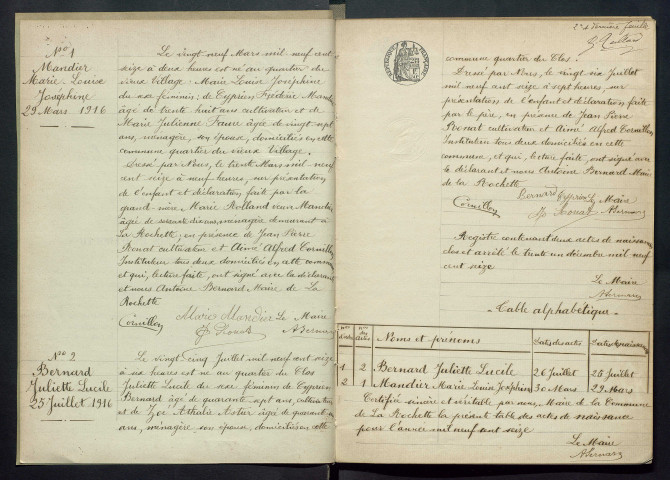 No 1
Mandier
Marie Louise
Joséphine
29 Mars 1916
Le vingt-neuf Mars mil neuf cent
seize à deux heures est né au quartier du
vieux village: Marie Louise Joséphine
du sexe féminin; de Cyprien Frédéric Mandier
âgé de trente huit ans cultivateur et de
Marie Julienne Faure âgée de vingt-sept
ans, ménagère, son épouse, domiciliés en cette
commune quartier du vieux Village.
Dressé par Nous, le trente Mars mil neuf
cent seize à neuf heures, sur présentation
de l'enfant et déclaration faite par la
grand-mère, Marie Rolland veuve Mandier,
âgée de soixante dix ans, ménagère demeurant à
La Rochette; en présence de Jean Pierre
Bonat cultivateur et Aimé Alfred Cornillon
Instituteur tous deux domiciliés en cette commune
et qui, lecture faite, ont signé avec la déclarante
et nous Antoine Bernard Maire de La
Rochette
Marie Mandier Le Maire
Cornillon
A Bernard
No 2
Bernard
Juliette Lucile
25 Juillet 1916
Le vingt cinq Juillet mil neuf cent seize
à six heures est né au quartier du Clos
Juliette Lucile du sexe féminin de Cyprien
Bernard âgé de quarante sept ans, cultivateur
et de Athalie Astier âgée de quarante
ans, ménagère son épouse, domiciliés en cette
2e & dernière feuille
commune quartier du Clos.
Dressé par Nous, le vingt six Juillet
mil neuf cent seize à sept heures, sur
présentation de l'enfant et déclaration faite
par le père, en présence de Jean Pierre
Bonat cultivateur et Aimé Alfred Cornillon
Instituteur tous deux domiciliés en cette
commune, et qui, lecture faite, ont signé avec
le déclarant et nous Antoine Bernard Maire
de La Rochette
Bernard Cyprien Le Maire
Cornillon
A Bernard
Registre contenant deux actes de naissance
clos et arrêté le trente un décembre mil neuf
cent seize
Le Maire
A Bernard
Table alphabétique
Nos d'ordre Nos des Actes Noms et prénoms Dates des actes Dates des naissances
1 2 Bernard Juliette Lucile 26 Juillet 25 Juillet
2 1 Mandier Marie Louise Joséphine 30 Mars 29 Mars
Certifié sincère et véritable par nous, Maire de la Commune
de La Rochette la présente table des actes de naissance
pour l'année mil neuf cent seize
Le Maire
A Bernard